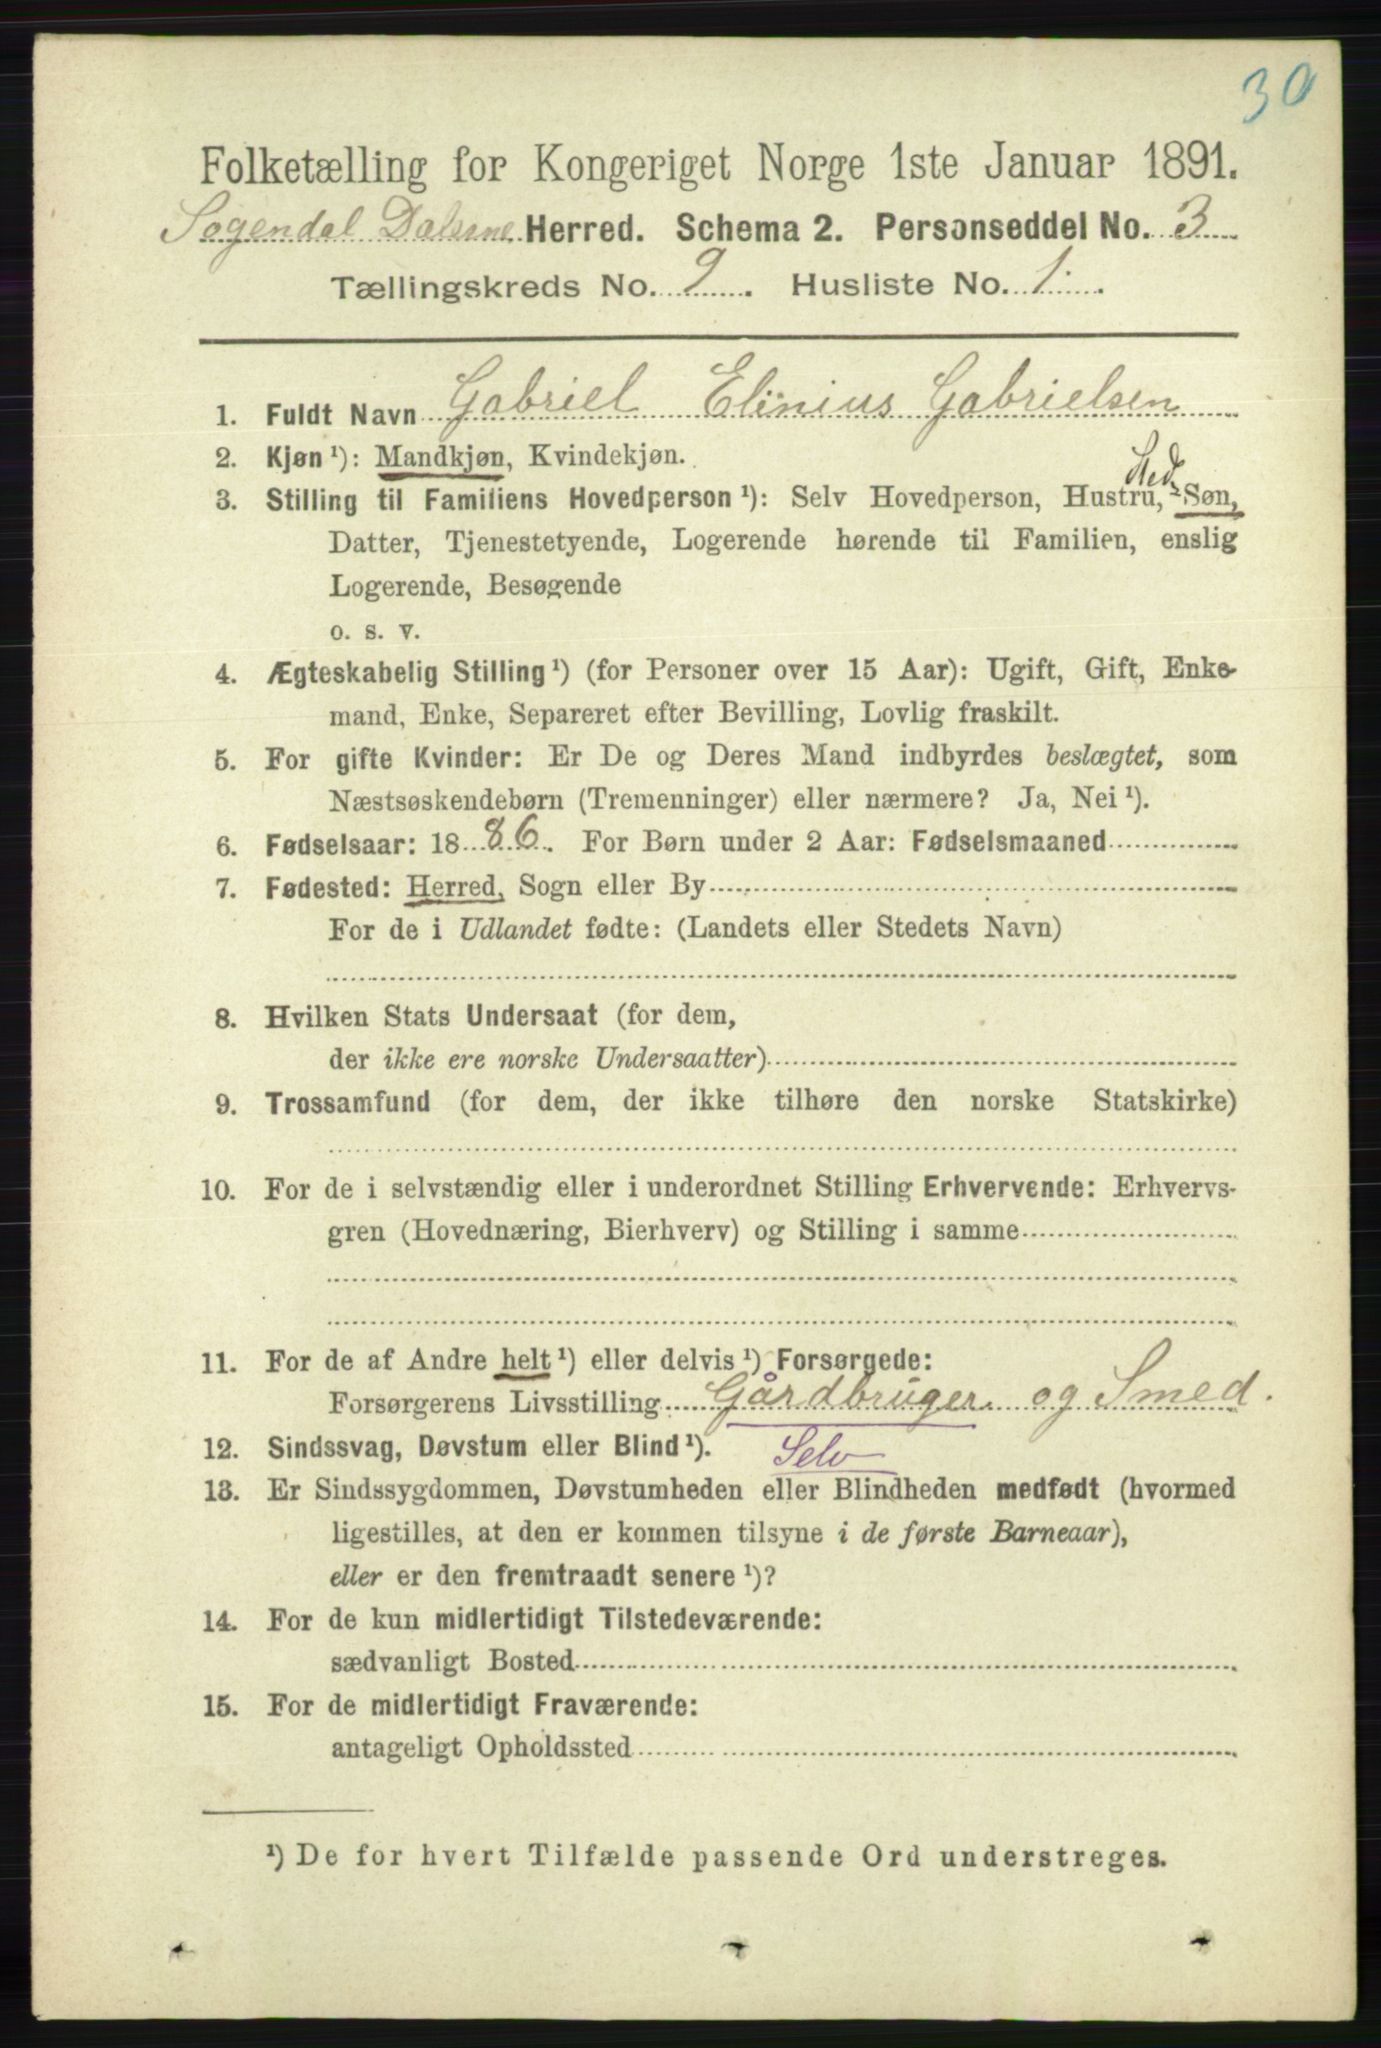 30
Folketælling for Kongeriget Norge 1ste Januar 1891.
Sogendal Dalerne Herred. Schema 2. Personseddel No. 3
Tællingskreds No. 9. Husliste No. 1.
1. Fuldt Navn Gabriel Elinius Gabrielsen
2. Kjøn ¹): Mandkjøn, Kvindekjøn.
Sted-
3. Stilling til Familiens Hovedperson ¹): Selv Hovedperson, Hustru, Søn,
Datter, Tjenestetyende, Logerende hørende til Familien, enslig
Logerende, Besøgende
o. s. v.
4. Ægteskabelig Stilling ¹) (for Personer over 15 Aar): Ugift, Gift, Enke-
mand, Enke, Separeret efter Bevilling, Lovlig fraskilt.
5. For gifte Kvinder: Er De og Deres Mand indbyrdes beslægtet, som
Næstsøskendebørn (Tremenninger) eller nærmere? Ja, Nei ¹).
6. Fødselsaar: 1886. For Børn under 2 Aar: Fødselsmaaned
7. Fødested: Herred, Sogn eller By
For de i Udlandet fødte: (Landets eller Stedets Navn)
8. Hvilken Stats Undersaat (for dem,
der ikke ere norske Undersaatter)
9. Trossamfund (for dem, der ikke tilhøre den norske Statskirke)
10. For de i selvstændig eller i underordnet Stilling Erhvervende: Erhvervs-
gren (Hovednæring, Bierhverv) og Stilling i samme
11. For de af Andre helt ¹) eller delvis ¹) Forsørgede:
Forsørgerens Livsstilling Gårdbruger og Smed.
12. Sindssvag, Døvstum eller Blind ¹). Selv
13. Er Sindssygdommen, Døvstumheden eller Blindheden medfødt (hvormed
ligestilles, at den er kommen tilsyne i de første Barneaar),
eller er den fremtraadt senere ¹)?
14. For de kun midlertidigt Tilstedeværende:
sædvanligt Bosted
15. For de midlertidigt Fraværende:
antageligt Opholdssted
¹) De for hvert Tilfælde passende Ord understreges.